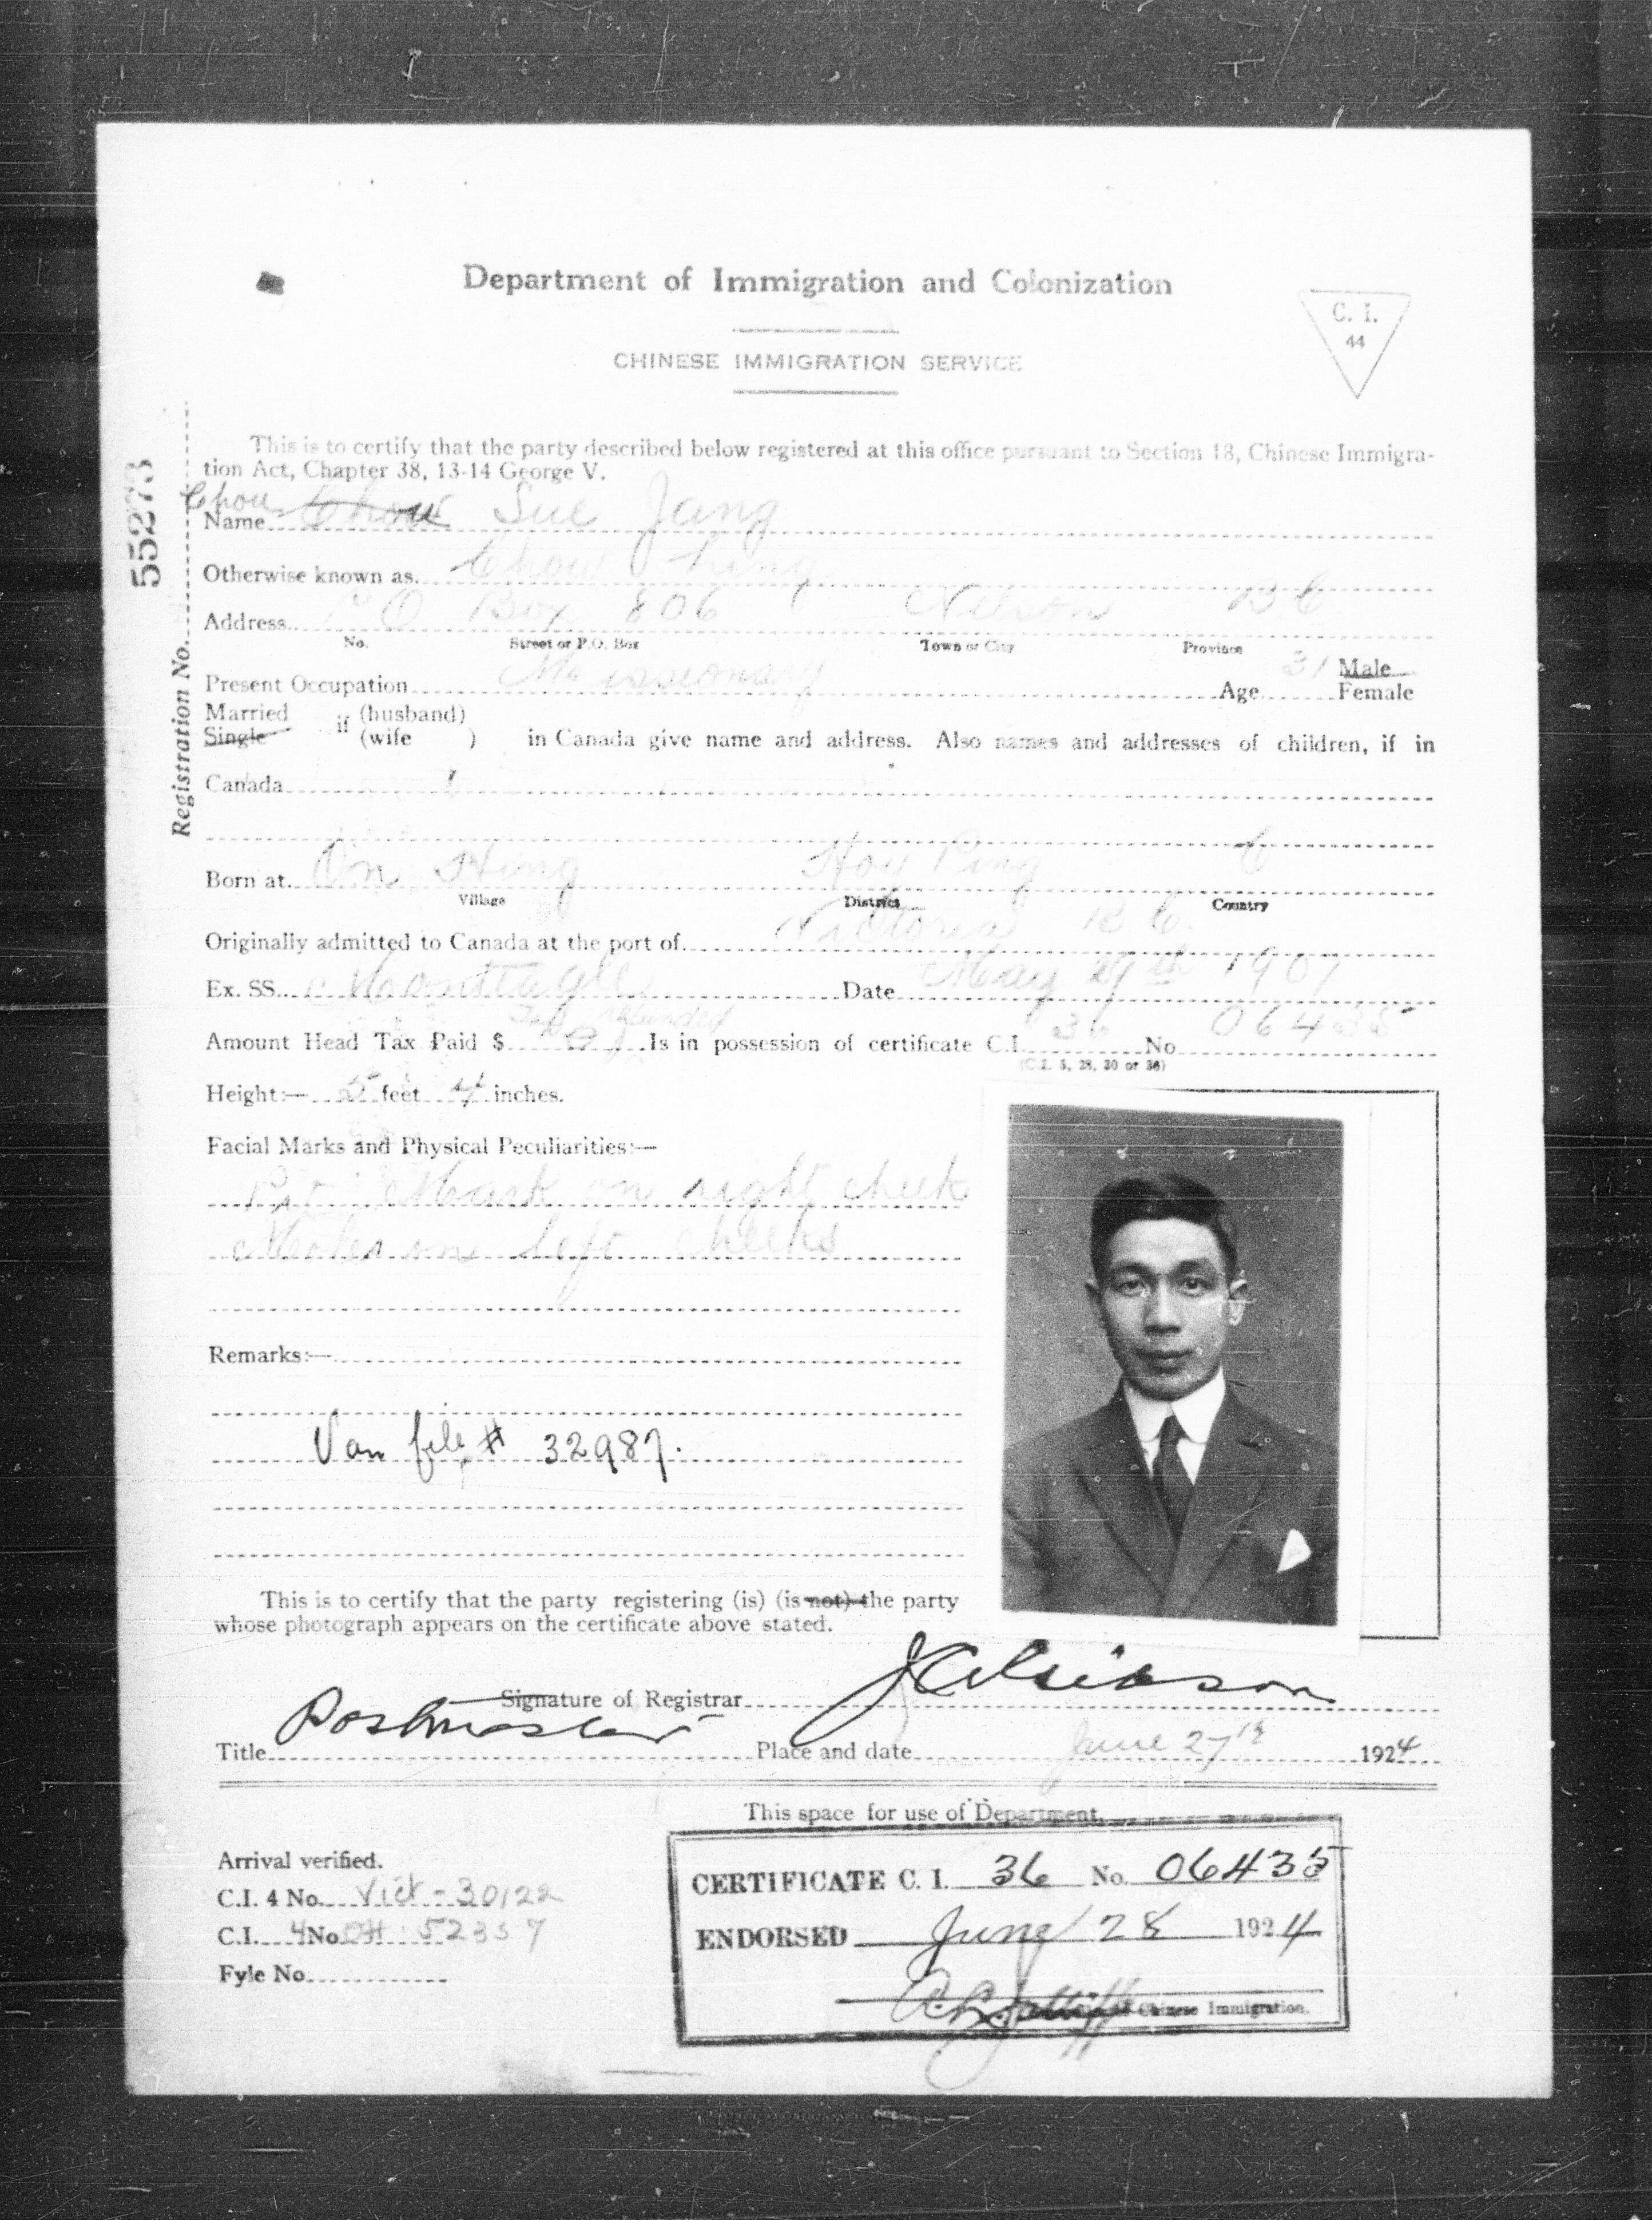 Department of Immigration and Colonization
C. I.
44
CHINESE IMMIGRATION SERVICE
This is to certify that the party described below registered at this office pursuant to Section 18, Chinese Immigra-
tion Act, Chapter 38, 13-14 George V.
Registration No. 55273
Name Chou Chow Sue Jang
Otherwise known as. Chow
Address P O Box 806 Nelson B C
No. Street or P.O. Box Town or City Province
Present Occupation Missionary Age 31 Male Female
Married Single if (husband) (wife ) in Canada give name and address. Also names and addresses of children, if in
Canada
Born at On Hing Hoy Ping C
Village District Country
Originally admitted to Canada at the port of Victoria B.C.
Ex. SS. Monteagle Date May 27th 1907
Amount Head Tax Paid $ Is in possession of certificate C.I. 36 No 06435
(C.I. 5, 28, 30 or 36)
Height:— 5 feet 4 inches.
Facial Marks and Physical Peculiarities:—
Pit Mark on right cheek
Moles on left cheeks
Remarks:—
Van file # 32987.
This is to certify that the party registering (is) (is not) the party
whose photograph appears on the certificate above stated.
Signature of Registrar
Title Postmaster Place and date June 27th 1924
This space for use of Department.
Arrival verified.
C.I. 4 No. Vict - 30122
C.I. 4 No Ott 52357
Fyle No.
CERTIFICATE C. I. 36 No. 06435
ENDORSED June 28 1924
Chinese Immigration.